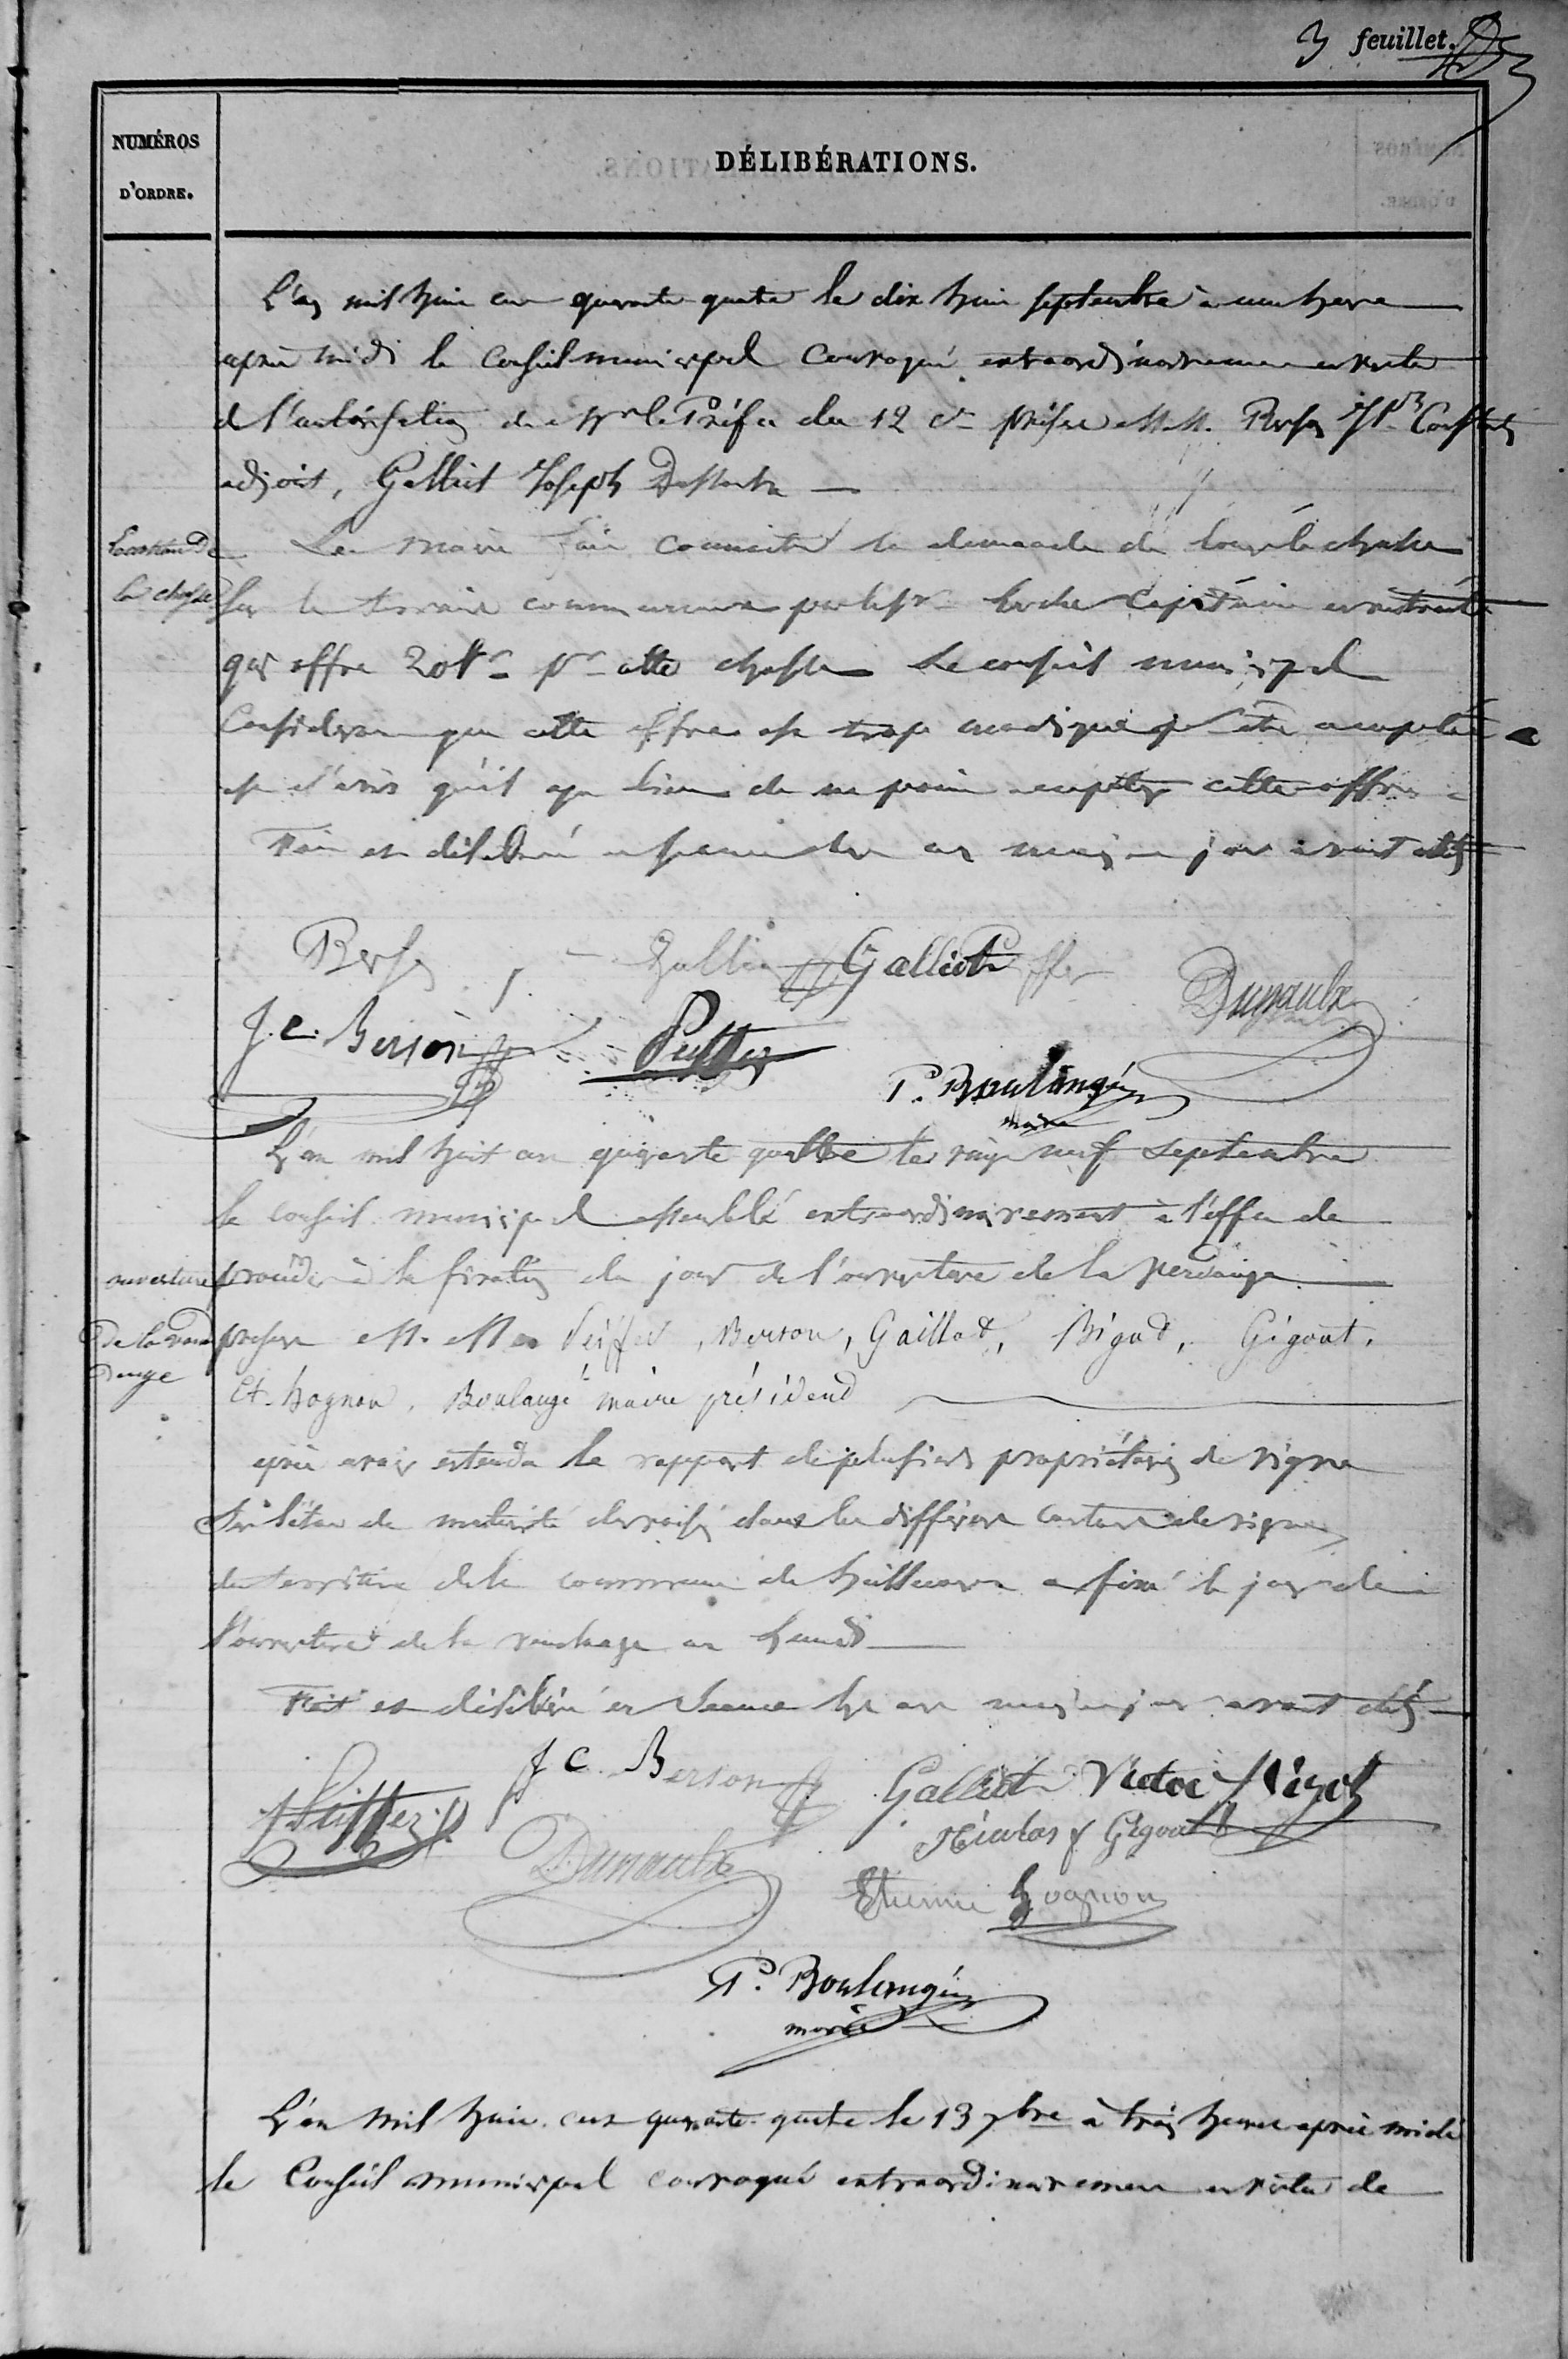 3 feuillet.
NUMÉROS
D'ORDRE.
DÉLIBÉRATIONS.
L'an mil huit cen quarante quatre le dix huit septembre à une heure
après midi le Conseil municipal Convoqué extraordinairement en vertu
de l'autorisation de Mr le Préfet du 12 Ct présens M.M. Berson
adjoint, Galliot Joseph
Location de
la chasse
Le Maire fait connaitre la demande de louer la chasse
sur le terrain communaux par le Sr Capitaine en retraite
qui offre 20 fr pr cette chasse Le conseil municipal
Considérant que cette offre est trop modique pr être acceptée
est d'avis qu'il y a lieu de ne point accepter cette offre
Fait et délibéré en séance les an mois et jour avant dits
Galliot
J. C. Berson
P. Boulangé
maire
L'an mil huit cen quarante quatre le vingt neuf septembre
le conseil municipal assemblé extraordinairement à l'effet de
ouverture
de la ven
dange
procéder à la fixation du jour de l'ouverture de la vendange
présens M. M. es Peiffer, Berson, Gaillot, Bigot, Gigout,
Et. hognon, Boulangé maire président
après avoir entendu le rapport de plusieurs propriétaires de vigne
sur l'état de maturité des raisins dans les différens cantons de vignes
du territoire de la commune de a fixé le jour de
l'ouverture de la vendange au Lundi
Fait et délibéré en Séance les an mois et jour avant dits
J C. Berson
Galliot
Victor
Nicolas Gigout
Etienne hognon
P. Boulangé
maire
L'an mil huit cen quarante quatre le 13 7bre à trois heures après midi
le Conseil municipal convoqué extraordinairement en vertu de